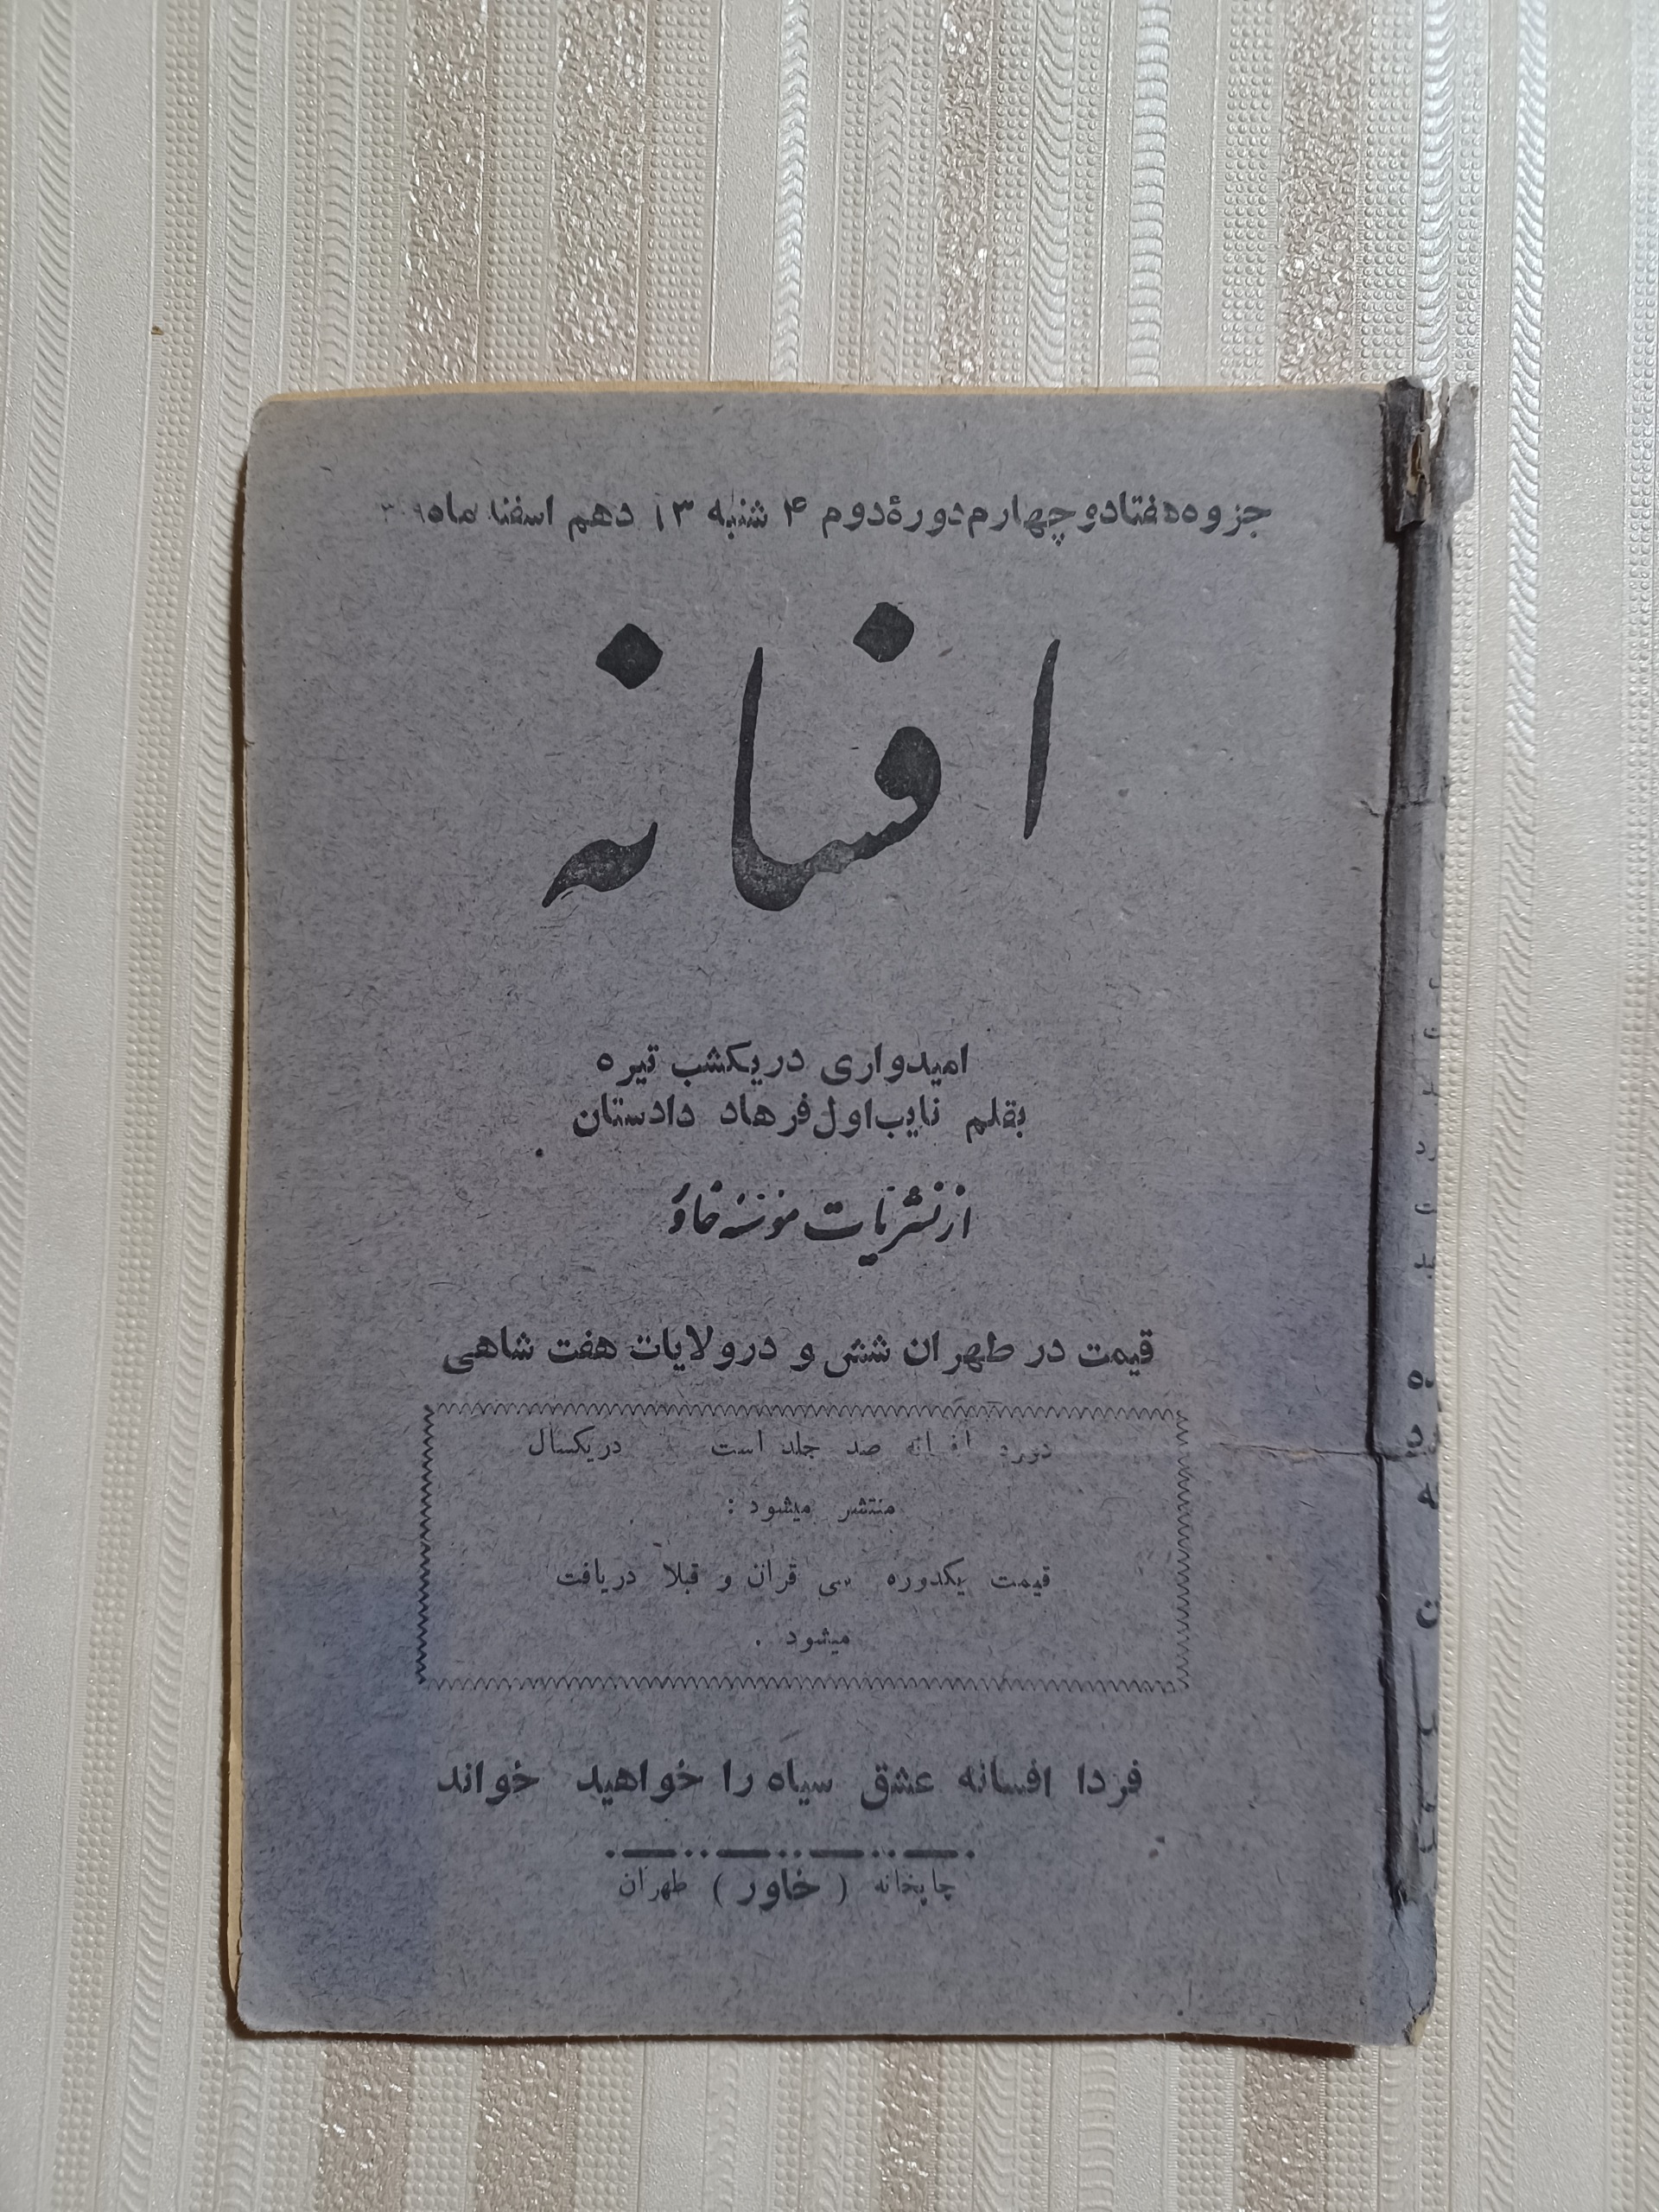 جزوه هفتاد و چهارم دورهٔ دوم ۴ شنبه ۱۳ دهم اسفند ماه
افسانه
امیدواری در یکشب تیره
بقلم نایب اول فرهاد دادستان
از نشریات مؤسسه خاور
قیمت در طهران شش و در ولایات هفت شاهی
دوره افسانه صد جلد است در یکسال
منتشر میشود :
قیمت یکدوره سی قران و قبلا دریافت
میشود .
فردا افسانه عشق سیاه را خواهید خواند
چاپخانه ( خاور ) طهران